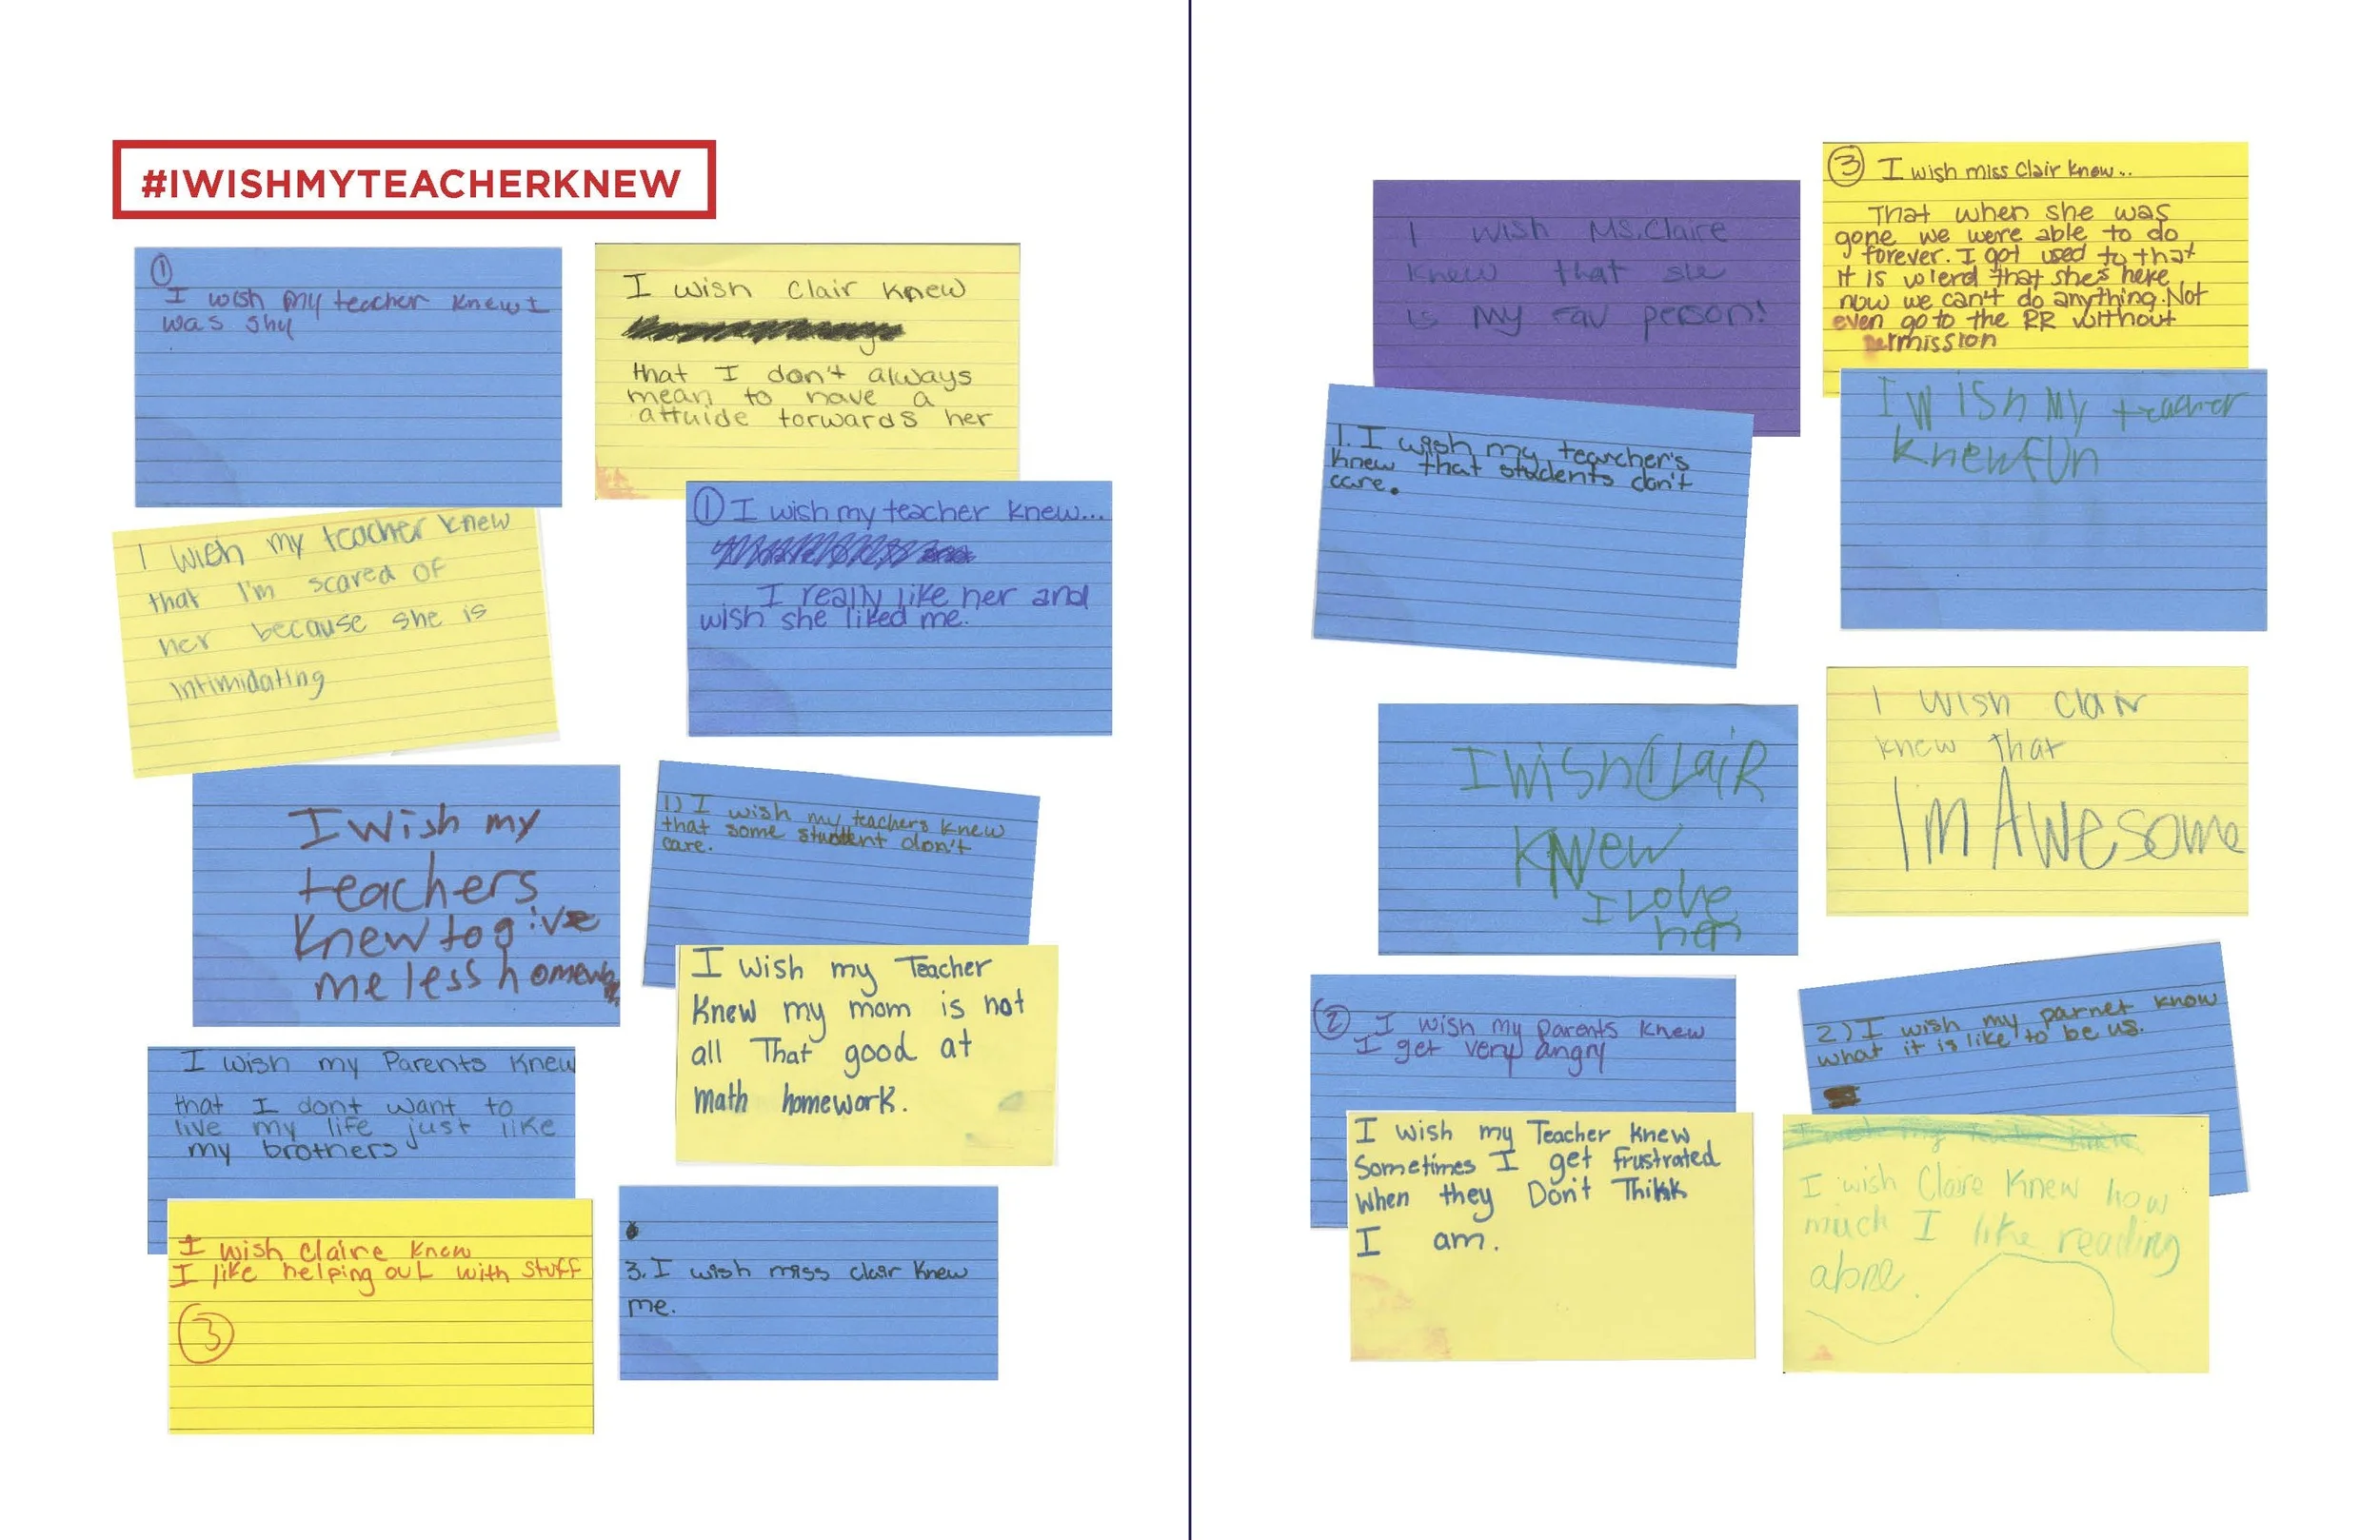 #IWISHMYTEACHERKNEW
①
I wish my teacher knew I
was shy
I wish Clair knew
that I don't always
mean to have a
attuide torwards her
I wish my teacher knew
that I'm scared of
her because she is
intimidating
① I wish my teacher knew...
I really like her and
wish she liked me.
I wish my
teachers
knew to give
me less homewrk
1) I wish my teachers knew
that some student don't
care.
I wish my Teacher
Knew my mom is not
all That good at
math homework.
I wish my Parents knew
that I dont want to
live my life just like
my brothers
I wish Claire know
I like helping out with stuff
③
3. I wish miss clair knew
me.
I wish Ms.Claire
knew that she
is my fav person!
③ I wish miss Clair knew..
That when she was
gone we were able to do
forever. I got used to that
it is wierd that she's here
now we can't do anything. Not
even go to the RR without
permission
1. I wish my tearcher's
knew that students don't
care.
I wish my teacher
knew fun
I wish Clair
Knew
I Love
her
I wish Clair
knew that
I'm Awesome
② I wish my parents knew
I get very angry
2) I wish my parnet know
what it is like to be us.
I wish my Teacher knew
Sometimes I get frustrated
When they Don't Think
I am.
I wish my teacher knew
I wish Claire Knew how
much I like reading
alone.